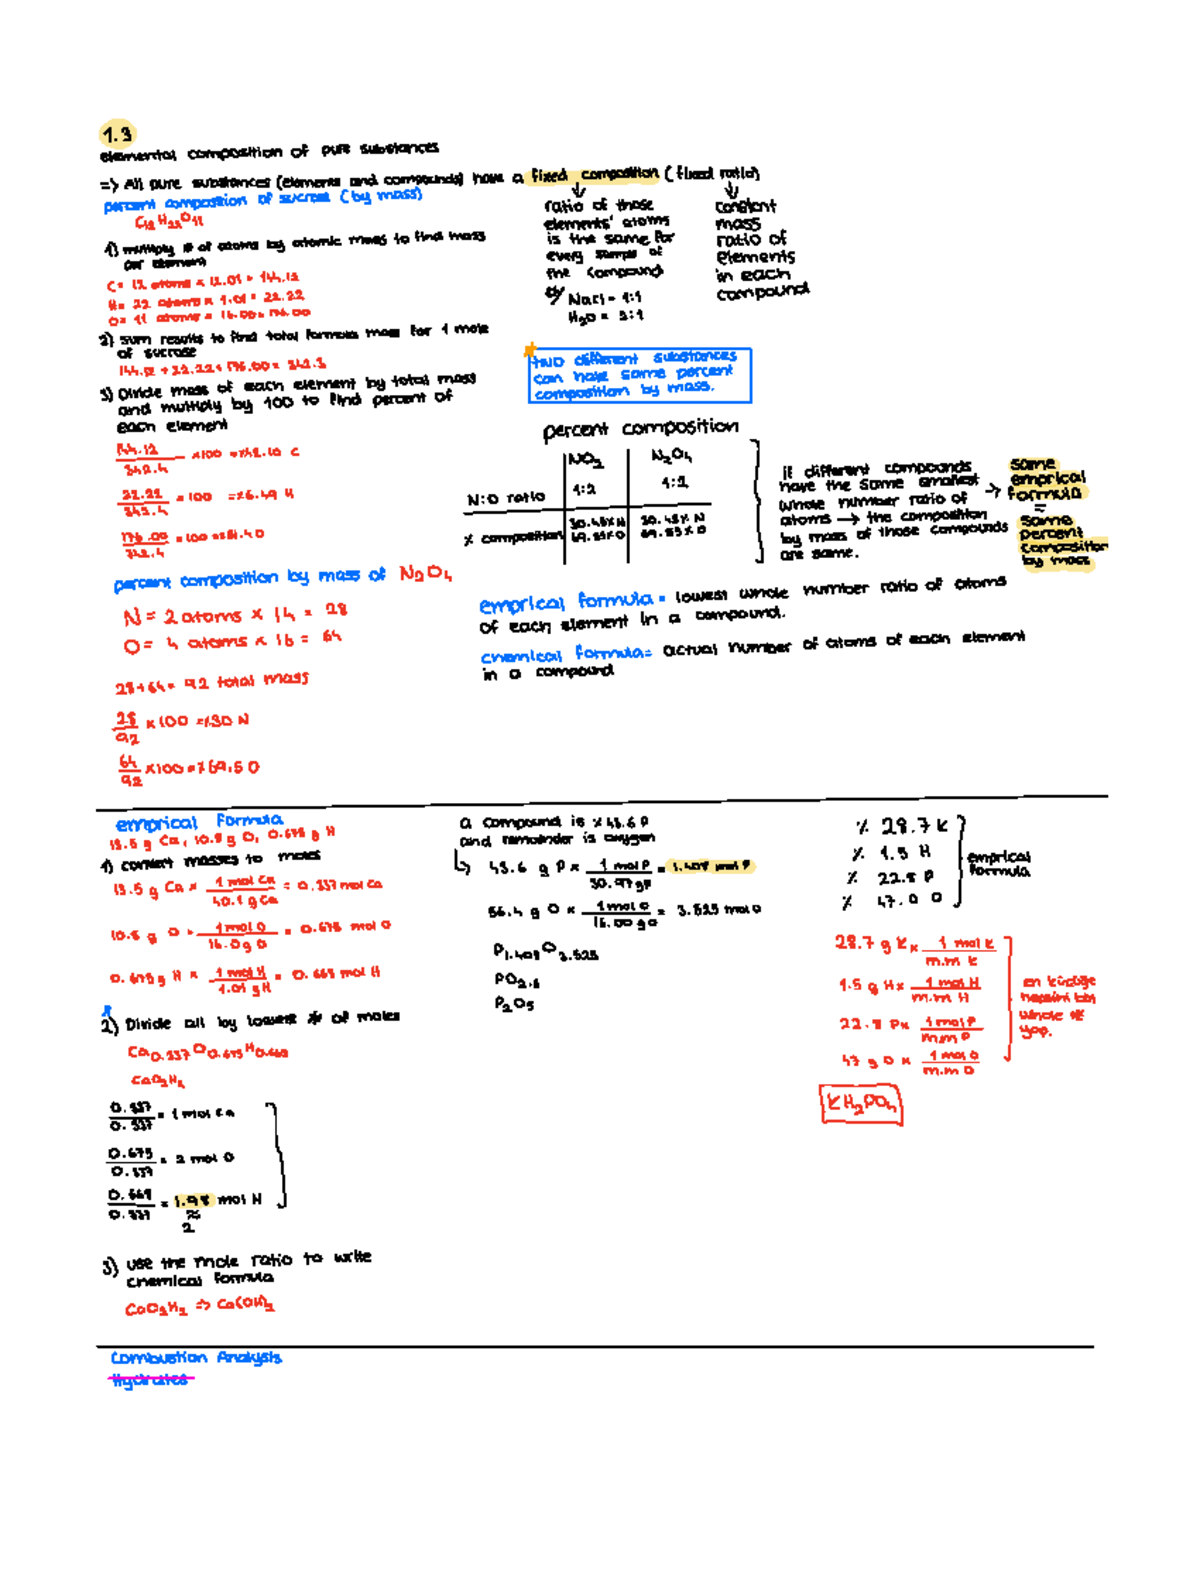 1.3
elemental composition of pure substances
=> All pure substances (elements and compounds) have a fixed composition (fixed ratio)
percent composition of sucrose (by mass)
C12 H22 O11
1) multiply # of atoms by atomic mass to find mass
per element
C= 12 atoms x 12.01 = 144.12
H= 22 atoms x 1.01 = 22.22
O= 11 atoms = 16.00 = 176.00
2) sum results to find total formula mass for 1 mole
of sucrose
144.12 + 22.22 + 176.00 = 342.3
3) Divide mass of each element by total mass
and multiply by 100 to find percent of
each element
144.12
342.4
x100 = %42.10 C
22.22
342.4
x 100 = %6.49 H
176.00
342.4
x 100 = %51.40
percent composition by mass of N2O4
N = 2 atoms x 14 = 28
O = 4 atoms x 16 = 64
28+64= 92 total mass
28
92
x 100 = %30 N
64
92
x100 = %69.5 O
ratio of those
elements' atoms
is the same for
every sample of
the compound
NaCl = 1:1
H2O = 2:1
constant
mass
ratio of
elements
in each
compound
two different substances
can have same percent
composition by mass.
percent composition
NO2
N2O4
N:O ratio
1:2
1:2
% composition
30.45% N
69.55% O
30.45% N
69.55% O
if different compounds
have the same smallest
whole number ratio of
atoms → the composition
by mass of those compounds
are same.
→ same
emprical
formula
=
same
percent
composition
by mass
emprical formula = lowest whole number ratio of atoms
of each element in a compound.
chemical formula= actual number of atoms of each element
in a compound
emprical formula
13.5 g Ca, 10.8 g O, 0.675 g H
1) convert masses to moles
13.5 g Ca x 1 mol Ca / 40.1 g Ca = 0.337 mol Ca
10.8 g O x 1 mol O / 16.0 g O = 0.675 mol O
0.675 g H x 1 mol H / 1.01 g H = 0.668 mol H
2) Divide all by lowest # of moles
Ca0.337 O0.675 H0.668
CaO2H2
0.337
0.337
= 1 mol Ca
0.675
0.337
= 2 mol O
0.668
0.337
= 1.98 mol H
≈
2
3) use the mole ratio to write
chemical formula
CaO2H2 => Ca(OH)2
a compound is %43.6 P
and remainder is oxygen
↳ 43.6 g P x 1 mol P / 30.97 g P = 1.408 mol P
56.4 g O x 1 mol O / 16.00 g O = 3.525 mol O
P1.408 O3.525
PO2.5
P2O5
% 28.7 K
% 1.5 H
% 22.8 P
% 47.0 O
emprical
formula
28.7 g K x 1 mol K / m.m K
1.5 g H x 1 mol H / m.m H
22.8 P x 1 mol P / m.m P
47 g O x 1 mol O / m.m O
en küçüğe
whole #
yap.
KH2PO4
Combustion Analysis
Hydrates